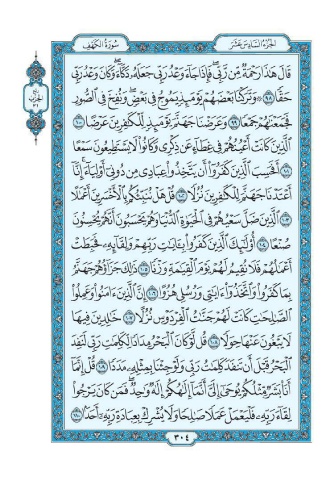 الجزء السادس عشر
سورة الكهف
قَالَ هَٰذَا رَحْمَةٌ مِّن رَّبِّي ۖ فَإِذَا جَاءَ وَعْدُ رَبِّي جَعَلَهُ دَكَّاءَ ۖ وَكَانَ وَعْدُ رَبِّي
حَقًّا ٩٨ ۞ وَتَرَكْنَا بَعْضَهُمْ يَوْمَئِذٍ يَمُوجُ فِي بَعْضٍ ۖ وَنُفِخَ فِي الصُّورِ
فَجَمَعْنَاهُمْ جَمْعًا ٩٩ وَعَرَضْنَا جَهَنَّمَ يَوْمَئِذٍ لِّلْكَافِرِينَ عَرْضًا ١٠٠
الَّذِينَ كَانَتْ أَعْيُنُهُمْ فِي غِطَاءٍ عَن ذِكْرِي وَكَانُوا لَا يَسْتَطِيعُونَ سَمْعًا
١٠١ أَفَحَسِبَ الَّذِينَ كَفَرُوا أَن يَتَّخِذُوا عِبَادِي مِن دُونِي أَوْلِيَاءَ ۚ إِنَّا
أَعْتَدْنَا جَهَنَّمَ لِلْكَافِرِينَ نُزُلًا ١٠٢ قُلْ هَلْ نُنَبِّئُكُم بِالْأَخْسَرِينَ أَعْمَالًا
١٠٣ الَّذِينَ ضَلَّ سَعْيُهُمْ فِي الْحَيَاةِ الدُّنْيَا وَهُمْ يَحْسَبُونَ أَنَّهُمْ يُحْسِنُونَ
صُنْعًا ١٠٤ أُولَٰئِكَ الَّذِينَ كَفَرُوا بِآيَاتِ رَبِّهِمْ وَلِقَائِهِ فَحَبِطَتْ
أَعْمَالُهُمْ فَلَا نُقِيمُ لَهُمْ يَوْمَ الْقِيَامَةِ وَزْنًا ١٠٥ ذَٰلِكَ جَزَاؤُهُمْ جَهَنَّمُ
بِمَا كَفَرُوا وَاتَّخَذُوا آيَاتِي وَرُسُلِي هُزُوًا ١٠٦ إِنَّ الَّذِينَ آمَنُوا وَعَمِلُوا
الصَّالِحَاتِ كَانَتْ لَهُمْ جَنَّاتُ الْفِرْدَوْسِ نُزُلًا ١٠٧ خَالِدِينَ فِيهَا
لَا يَبْغُونَ عَنْهَا حِوَلًا ١٠٨ قُل لَّوْ كَانَ الْبَحْرُ مِدَادًا لِّكَلِمَاتِ رَبِّي لَنَفِدَ
الْبَحْرُ قَبْلَ أَن تَنفَدَ كَلِمَاتُ رَبِّي وَلَوْ جِئْنَا بِمِثْلِهِ مَدَدًا ١٠٩ قُلْ إِنَّمَا
أَنَا بَشَرٌ مِّثْلُكُمْ يُوحَىٰ إِلَيَّ أَنَّمَا إِلَٰهُكُمْ إِلَٰهٌ وَاحِدٌ ۖ فَمَن كَانَ يَرْجُو
لِقَاءَ رَبِّهِ فَلْيَعْمَلْ عَمَلًا صَالِحًا وَلَا يُشْرِكْ بِعِبَادَةِ رَبِّهِ أَحَدًا ١١٠
٣٠٤
ربع
الحزب
٣١